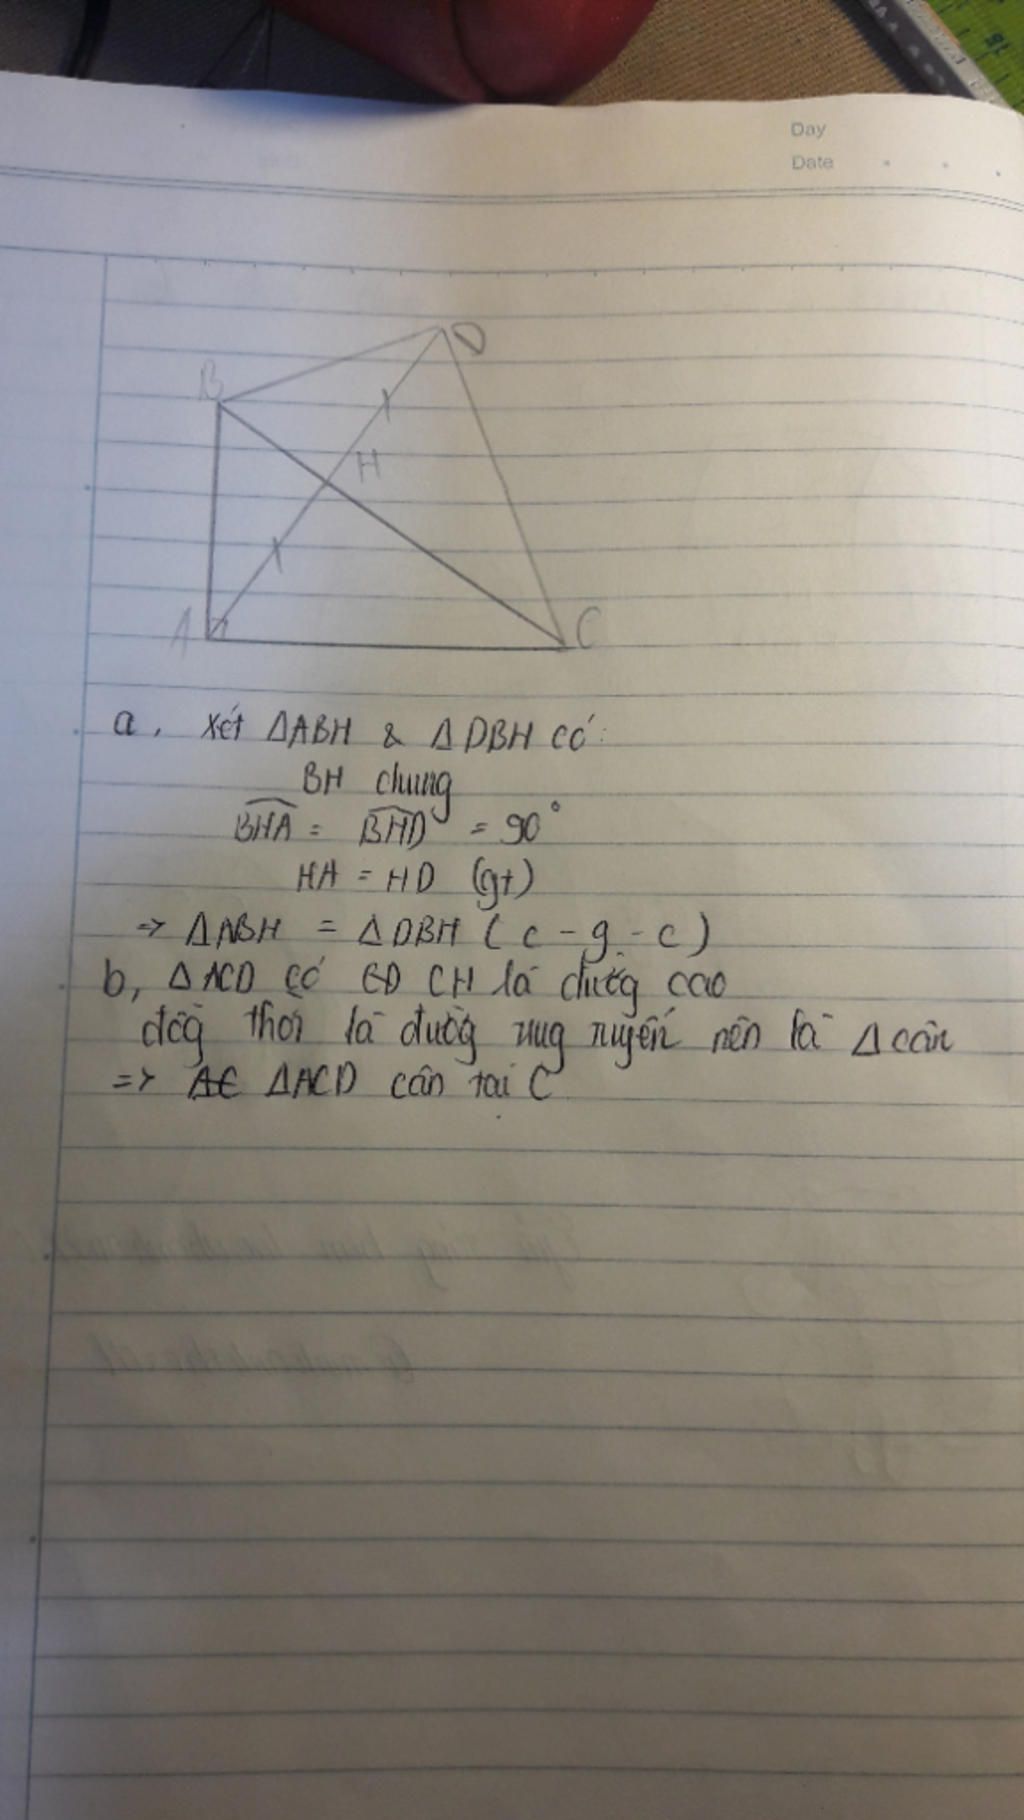 Day
Date
D
B
H
A
C
a. Xét ΔABH & ΔDBH có:
BH chung
BHA = BHD = 90°
HA = HD (gt)
=> ΔABH = ΔDBH (c-g-c)
b, ΔACD có CH là đường cao
đồg thời là đườg trug tuyến nên là Δ cân
=> ΔACD cân tại C